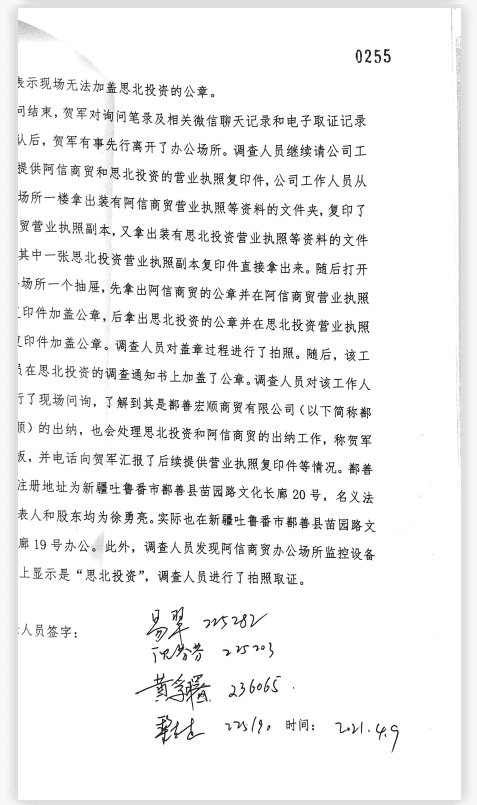 0255
表示现场无法加盖思北投资的公章。
问结束，贺军对询问笔录及相关微信聊天记录和电子取证记录
认后，贺军有事先行离开了办公场所。调查人员继续请公司工
提供阿信商贸和思北投资的营业执照复印件，公司工作人员从
场所一楼拿出装有阿信商贸营业执照等资料的文件夹，复印了
贸营业执照副本，又拿出装有思北投资营业执照等资料的文件
其中一张思北投资营业执照副本复印件直接拿出来。随后打开
场所一个抽屉，先拿出阿信商贸的公章并在阿信商贸营业执照
复印件加盖公章，后拿出思北投资的公章并在思北投资营业执照
复印件加盖公章。调查人员对盖章过程进行了拍照。随后，该工
员在思北投资的调查通知书上加盖了公章。调查人员对该工作人
行了现场问询，了解到其是鄯善宏顺商贸有限公司（以下简称鄯
顺）的出纳，也会处理思北投资和阿信商贸的出纳工作，称贺军
板，并电话向贺军汇报了后续提供营业执照复印件等情况。鄯善
注册地址为新疆吐鲁番市鄯善县苗园路文化长廊 20 号，名义法
表人和股东均为徐勇亮。实际也在新疆吐鲁番市鄯善县苗园路文
廊 19 号办公。此外，调查人员发现阿信商贸办公场所监控设备
上显示是“思北投资”，调查人员进行了拍照取证。
人员签字：
易翠 225282
225203
黄 236065
225190 时间： 2021.4.9